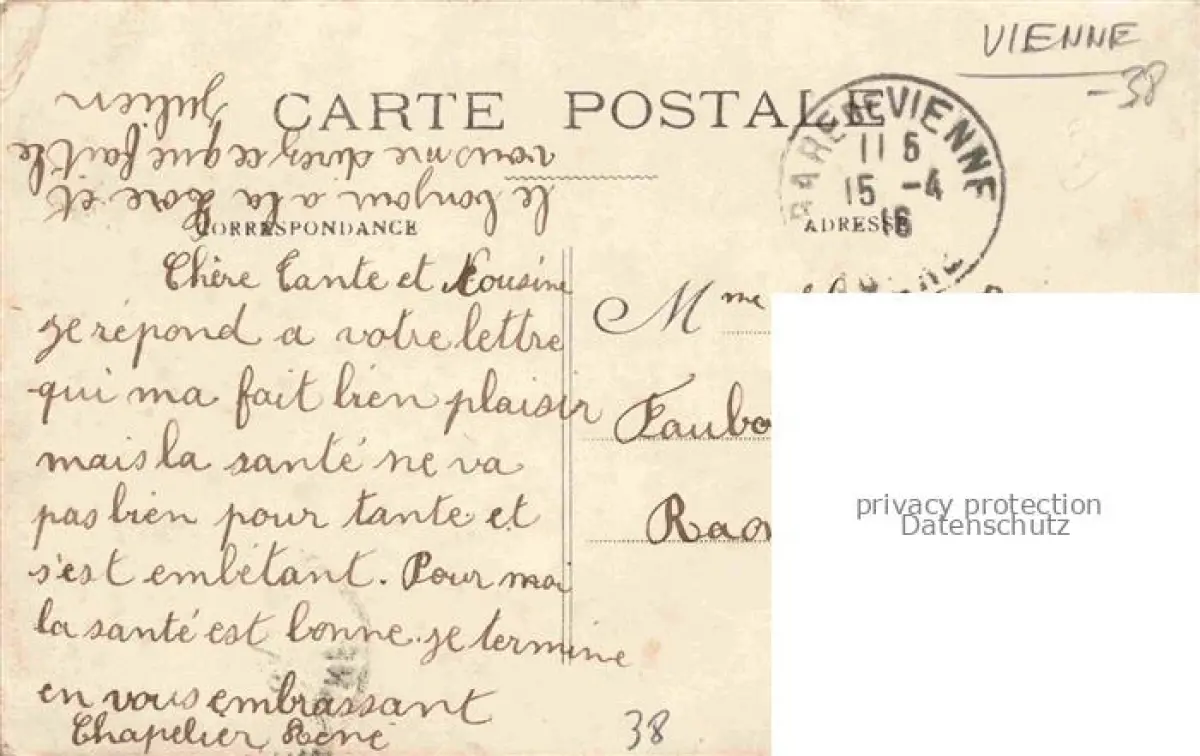 VIENNE
-38
CARTE POSTALE
GARE DE VIENNE
11 5
15 -4
16
CORRESPONDANCE
ADRESSE
Chère Tante et Kousine
je répond a votre lettre
qui ma fait bien plaisir
mais la santé ne va
pas bien pour tante et
s'est embétant. Pour moi
la santé est bonne. je termine
en vous embrassant
Chapelier René
le bonjour a la Lore et
vous me direz ce que fait le
Julien
Mme
Faubo
Rao
38
privacy protection
Datenschutz